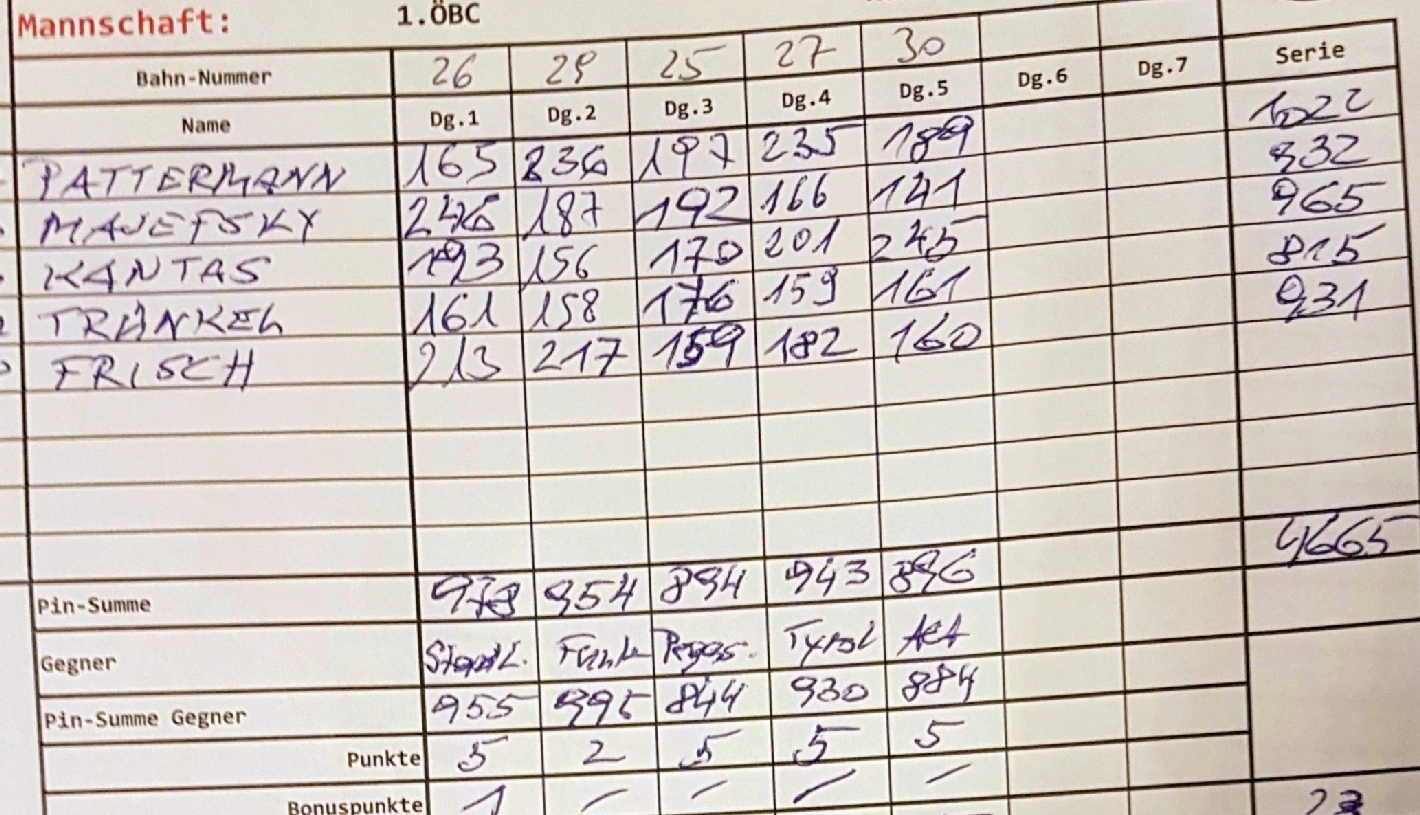 Mannschaft: 1.ÖBC
Bahn-Nummer 26 29 25 27 30 Serie
Name Dg.1 Dg.2 Dg.3 Dg.4 Dg.5 Dg.6 Dg.7
PATTERMANN 165 236 197 235 189 1022
MAJEFSKY 246 187 192 166 141 932
KANTAS 193 156 170 201 245 965
TRÄNKEL 161 158 176 159 161 815
FRISCH 213 217 159 182 160 931
Pin-Summe 978 954 894 943 896 4665
Gegner Stadl. Funk Pegas. Tyrol
Pin-Summe Gegner 955 995 844 930 884
Punkte 5 2 5 5 5
Bonuspunkte 1 / / / / 23